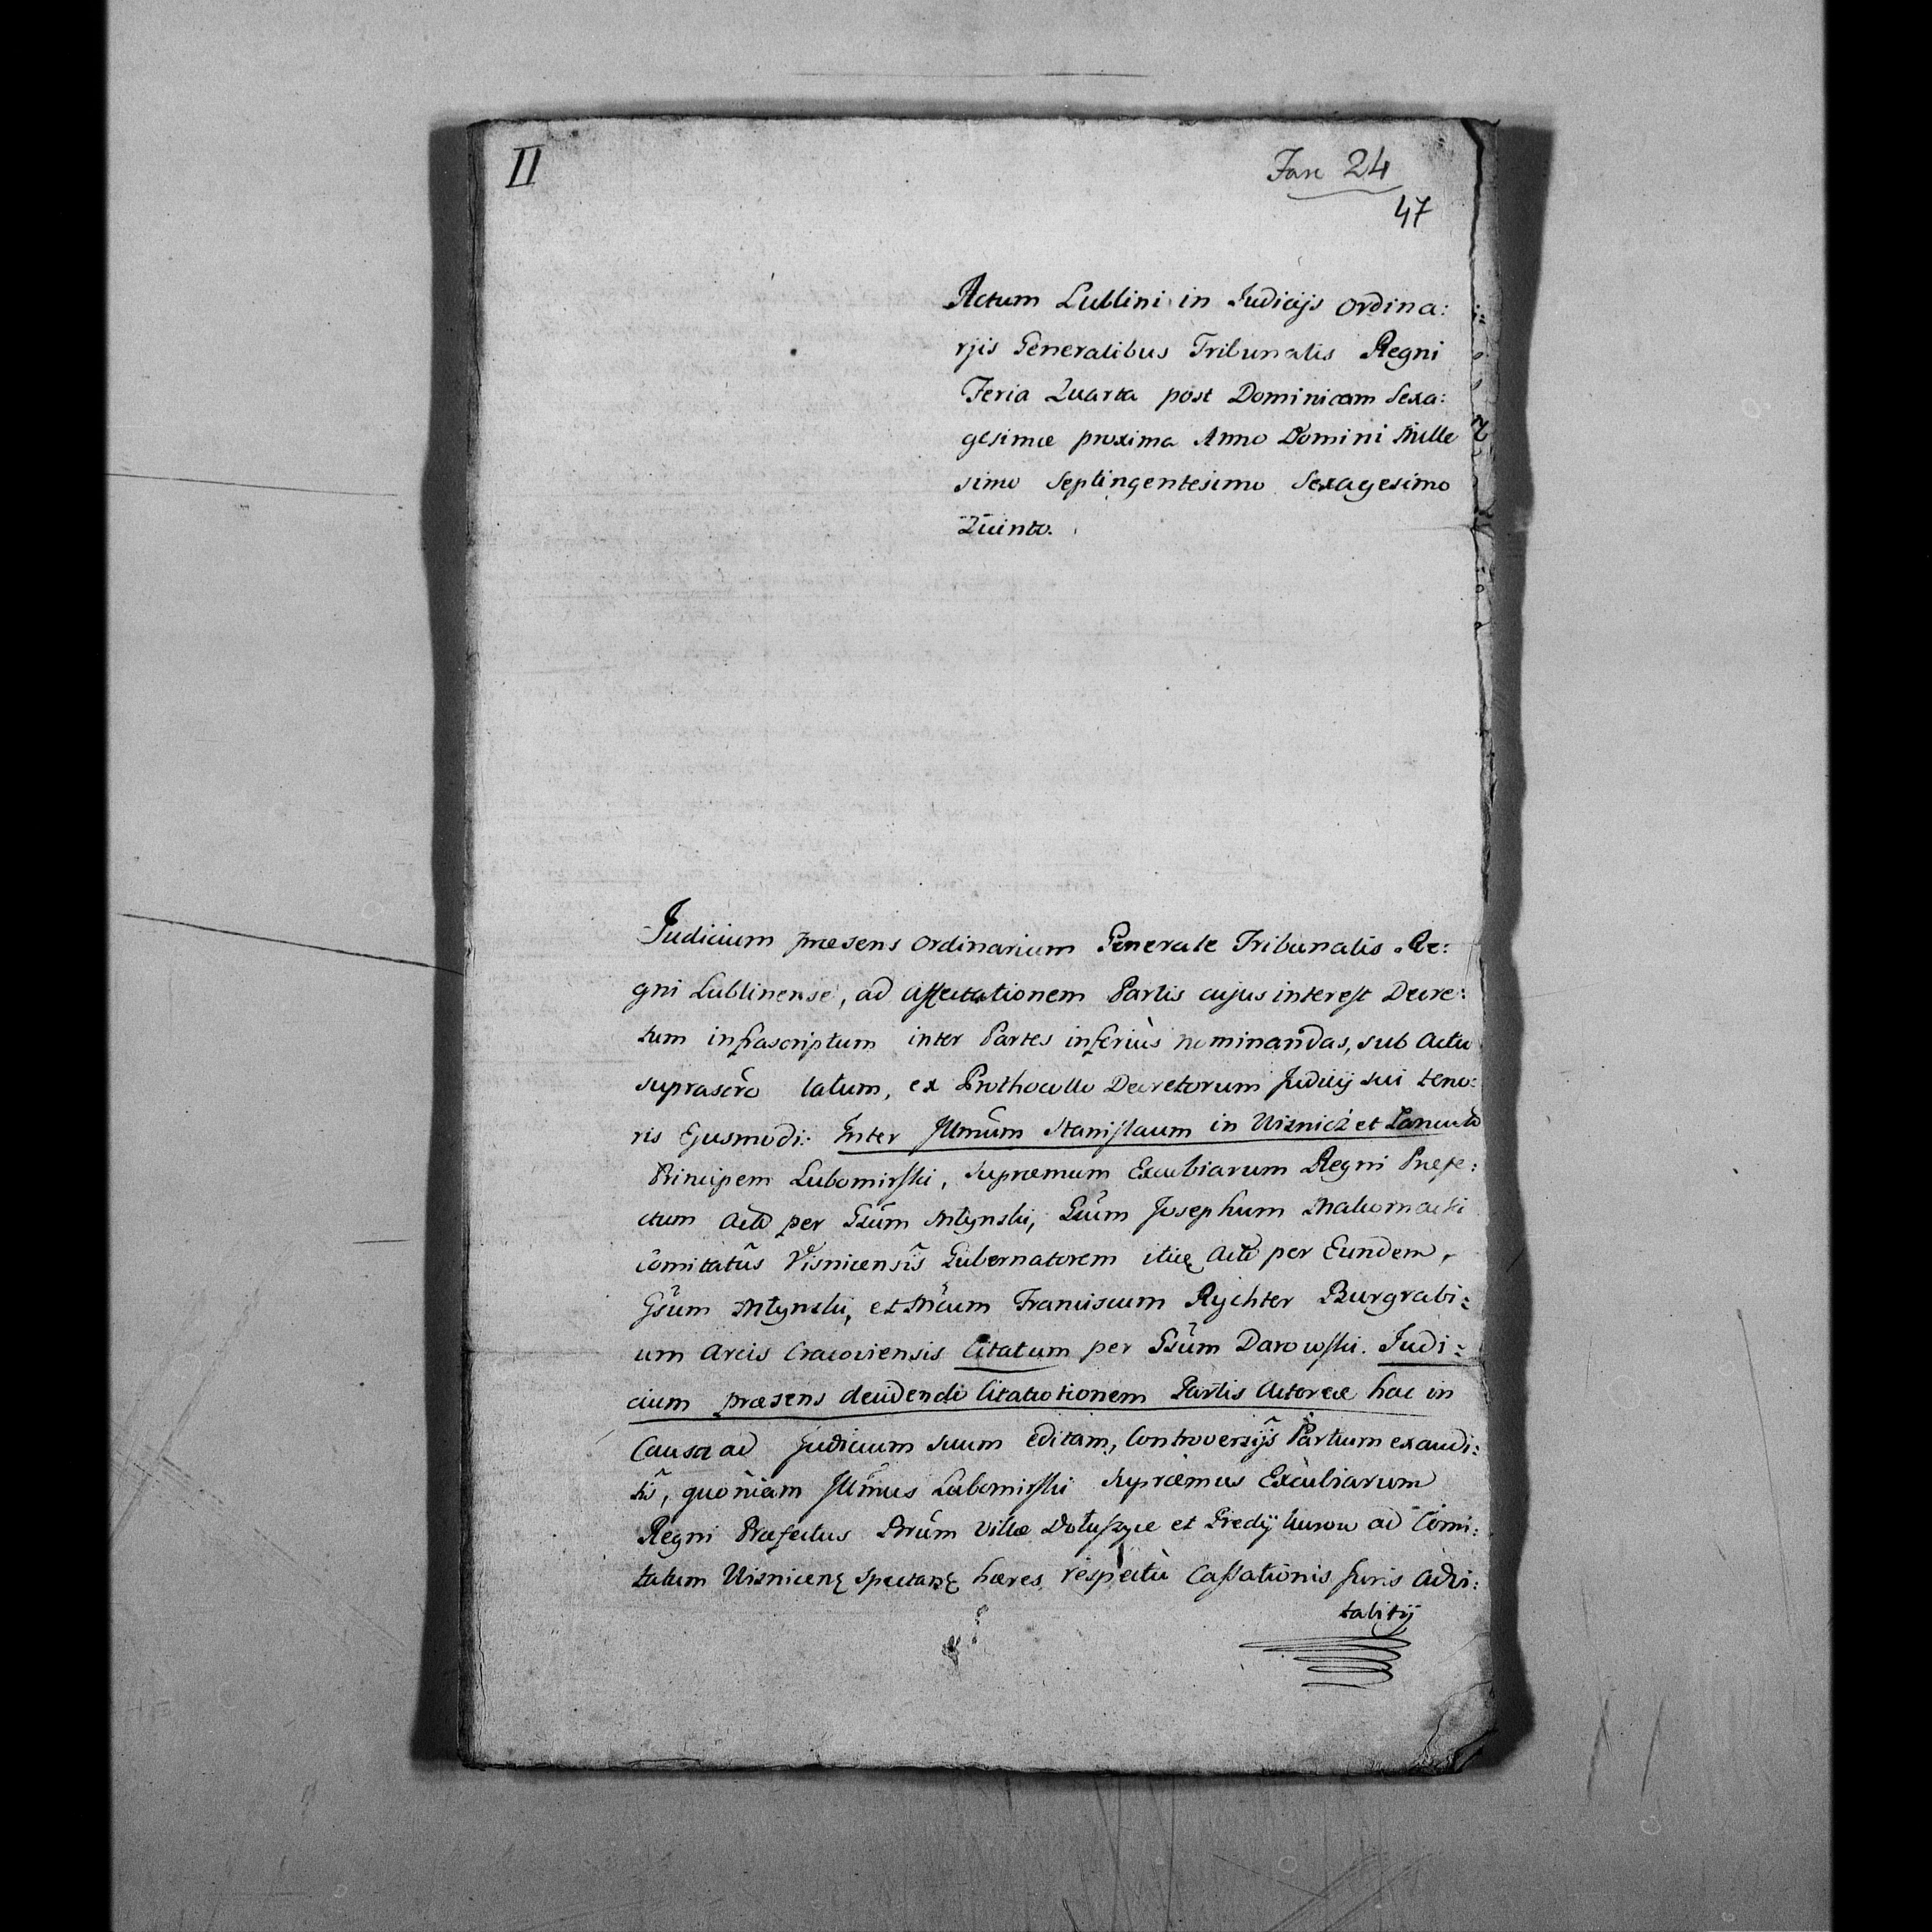 II
Fasc 24
47
Actum Lublini in Judicijs ordina:
rjis Generalibus Tribunalis Regni
Feria Quarta post Dominicam Sexa:
gesimæ proxima Anno Domini Mille
simo Septingentesimo Sexagesimo
Quinto.
Judicium præsens ordinarium Generale Tribunalis Re:
gni Lublinense, ad affectationem Partis cujus interest Decre:
tum infrascriptum inter Partes inferiùs nominandas, sub Actu
suprascro latum, ex Prothocollo Decretorum Judicij sui teno:
ris Ejusmodi: Inter Illmum Stanislaum in Wisnicz et
Principem Lubomirski, Supræmum Excubiarum Regni Præfe:
ctum Actõ per Gsum Młynski, Gsum Josephum
Comitatus Visnicensis Gubernatorem itidę Actõ per Eundem,
Gsum Młynski, et Franciscum Rychter Burgrabi:
um Arcis Cracoviensis Citatum per Gsum Darowski. Judi:
cium præsens decidendo Citationem Partis Actoreæ hac in
Causa ad Judicium suum editam, Controversijs Partium exaudi:
tis, quoniam Illmus Lubomirski Supræmus Excubiarum
Regni Præfectus Villæ Dołuszyce et Prædij ad Comi:
tatum Wisnicenę spectanę hæres respectu Cassationis Juris Advi:
talitij